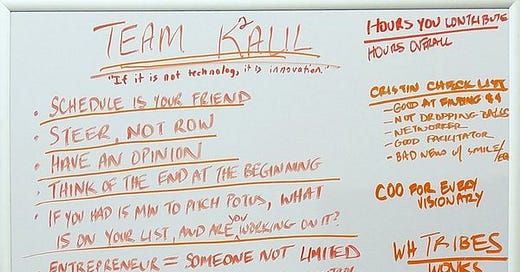 TEAM K²AUL
"If it is not technology, it is innovation."
• SCHEDULE IS YOUR FRIEND
• STEER, NOT ROW
• HAVE AN OPINION
• THINK OF THE END AT THE BEGINNING
• IF YOU HAD 15 MIN TO PITCH POTUS, WHAT
IS ON YOUR LIST, AND ARE YOU WORKING ON IT?
ENTREPRENEUR = SOMEONE NOT LIMITED
HOURS YOU CONTRIBUTE
HOURS OVERALL
CRISTIN CHECKLIST
- GOOD AT FINDING $$
- NOT DROPPING BALLS
- NETWORKER
- GOOD FACILITATOR
- BAD NEWS w/ SMILE/
COO FOR EVERY
VISIONARY
WH TRIBES
WONKS